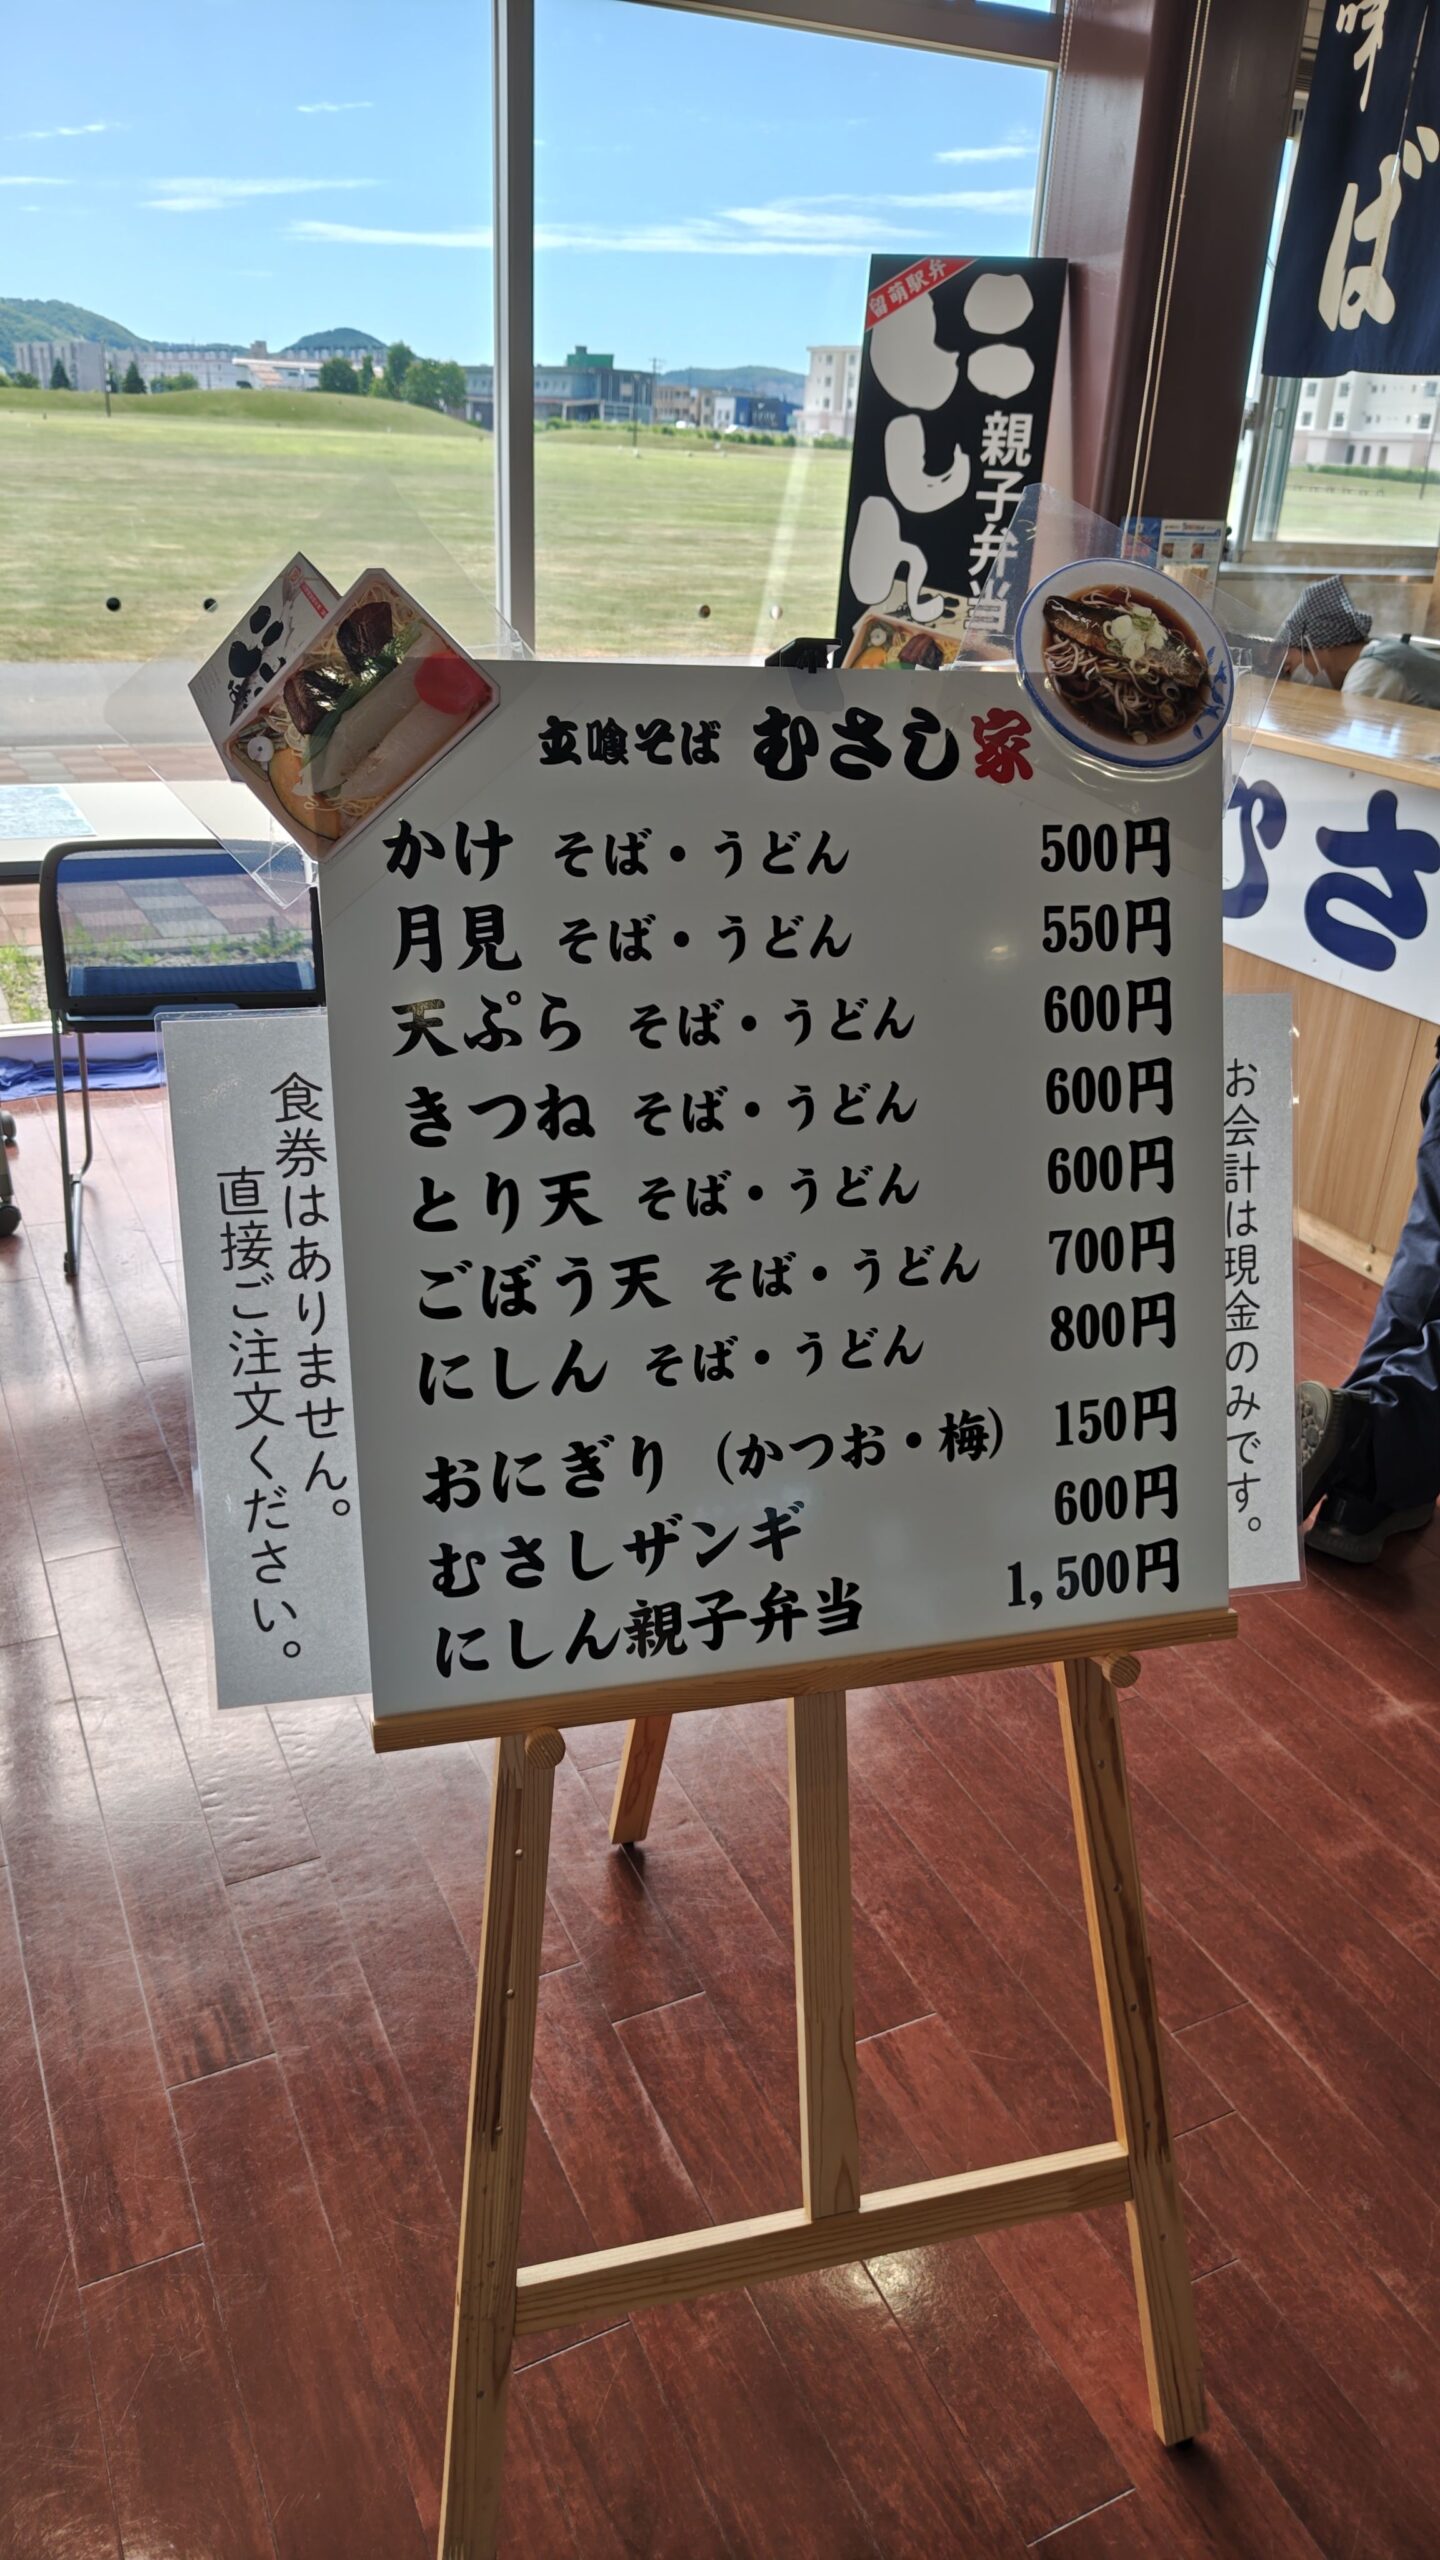 味
ば
留萌駅弁
にしん
親子弁当
立喰そば むさし家
かけ そば・うどん 500円
月見 そば・うどん 550円
天ぷら そば・うどん 600円
きつね そば・うどん 600円
とり天 そば・うどん 600円
ごぼう天 そば・うどん 700円
にしん そば・うどん 800円
おにぎり (かつお・梅) 150円
むさしザンギ 600円
にしん親子弁当 1,500円
食券はありません。
直接ご注文ください。
お会計は現金のみです。
むさ